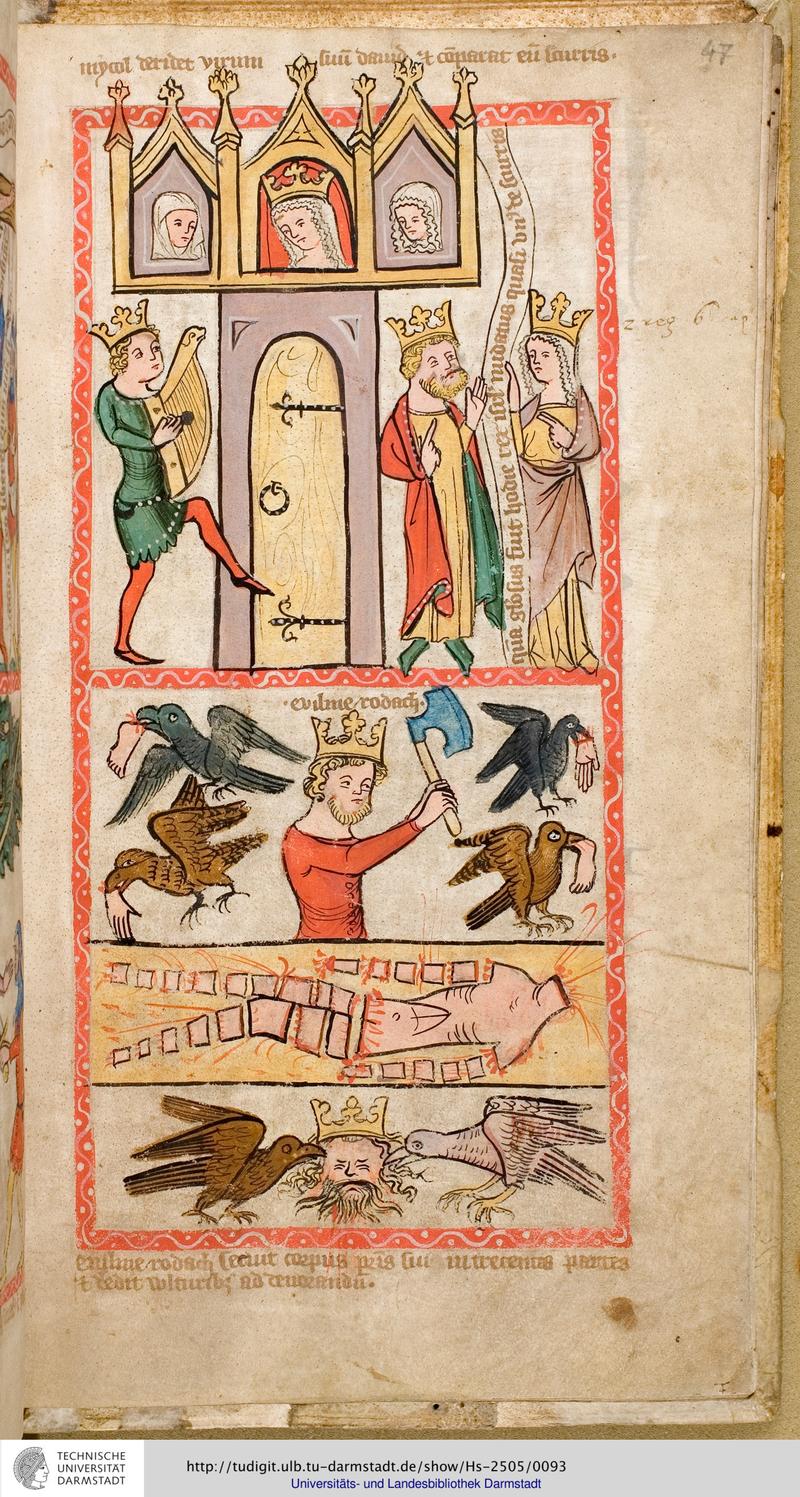 mycol deridet virum suū david ⁊ cōparat eū scurris.
47
quā gl'osus fuit hodie rex isrl nudatus quasi vn' de scurris
2 reg 6
evilme rodach.
evilme rodach secuit corpus pr̄is sui in trecentas partes
⁊ dedit wlturibꝫ ad devorandū.
TECHNISCHE
UNIVERSITÄT
DARMSTADT
http://tudigit.ulb.tu-darmstadt.de/show/Hs-2505/0093
Universitäts- und Landesbibliothek Darmstadt